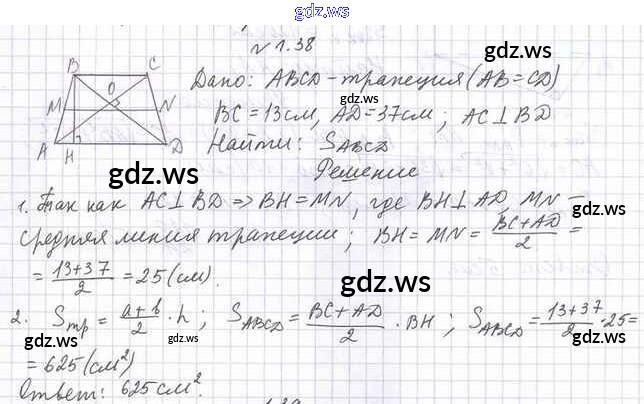 gdz.ws
№ 1.38
gdz.ws
B C
O
M N
A H D
Дано: ABCD - трапеция (AB = CD)
gdz.ws
BC = 13 см, AD = 37 см; AC ⊥ BD
Найти: S_ABCD
gdz.ws
Решение
gdz.ws
1. Так как AC ⊥ BD => BH = MN, где BH ⊥ AD, MN –
средняя линия трапеции; BH = MN = (BC + AD)/2 =
= (13 + 37)/2 = 25 (см).
gdz.ws
2. S_тр = (a + b)/2 · h; S_ABCD = (BC + AD)/2 · BH; S_ABCD = (13 + 37)/2 · 25 =
gdz.ws
gdz.ws
= 625 (см²)
Ответ: 625 см².
gdz.ws
gdz.ws